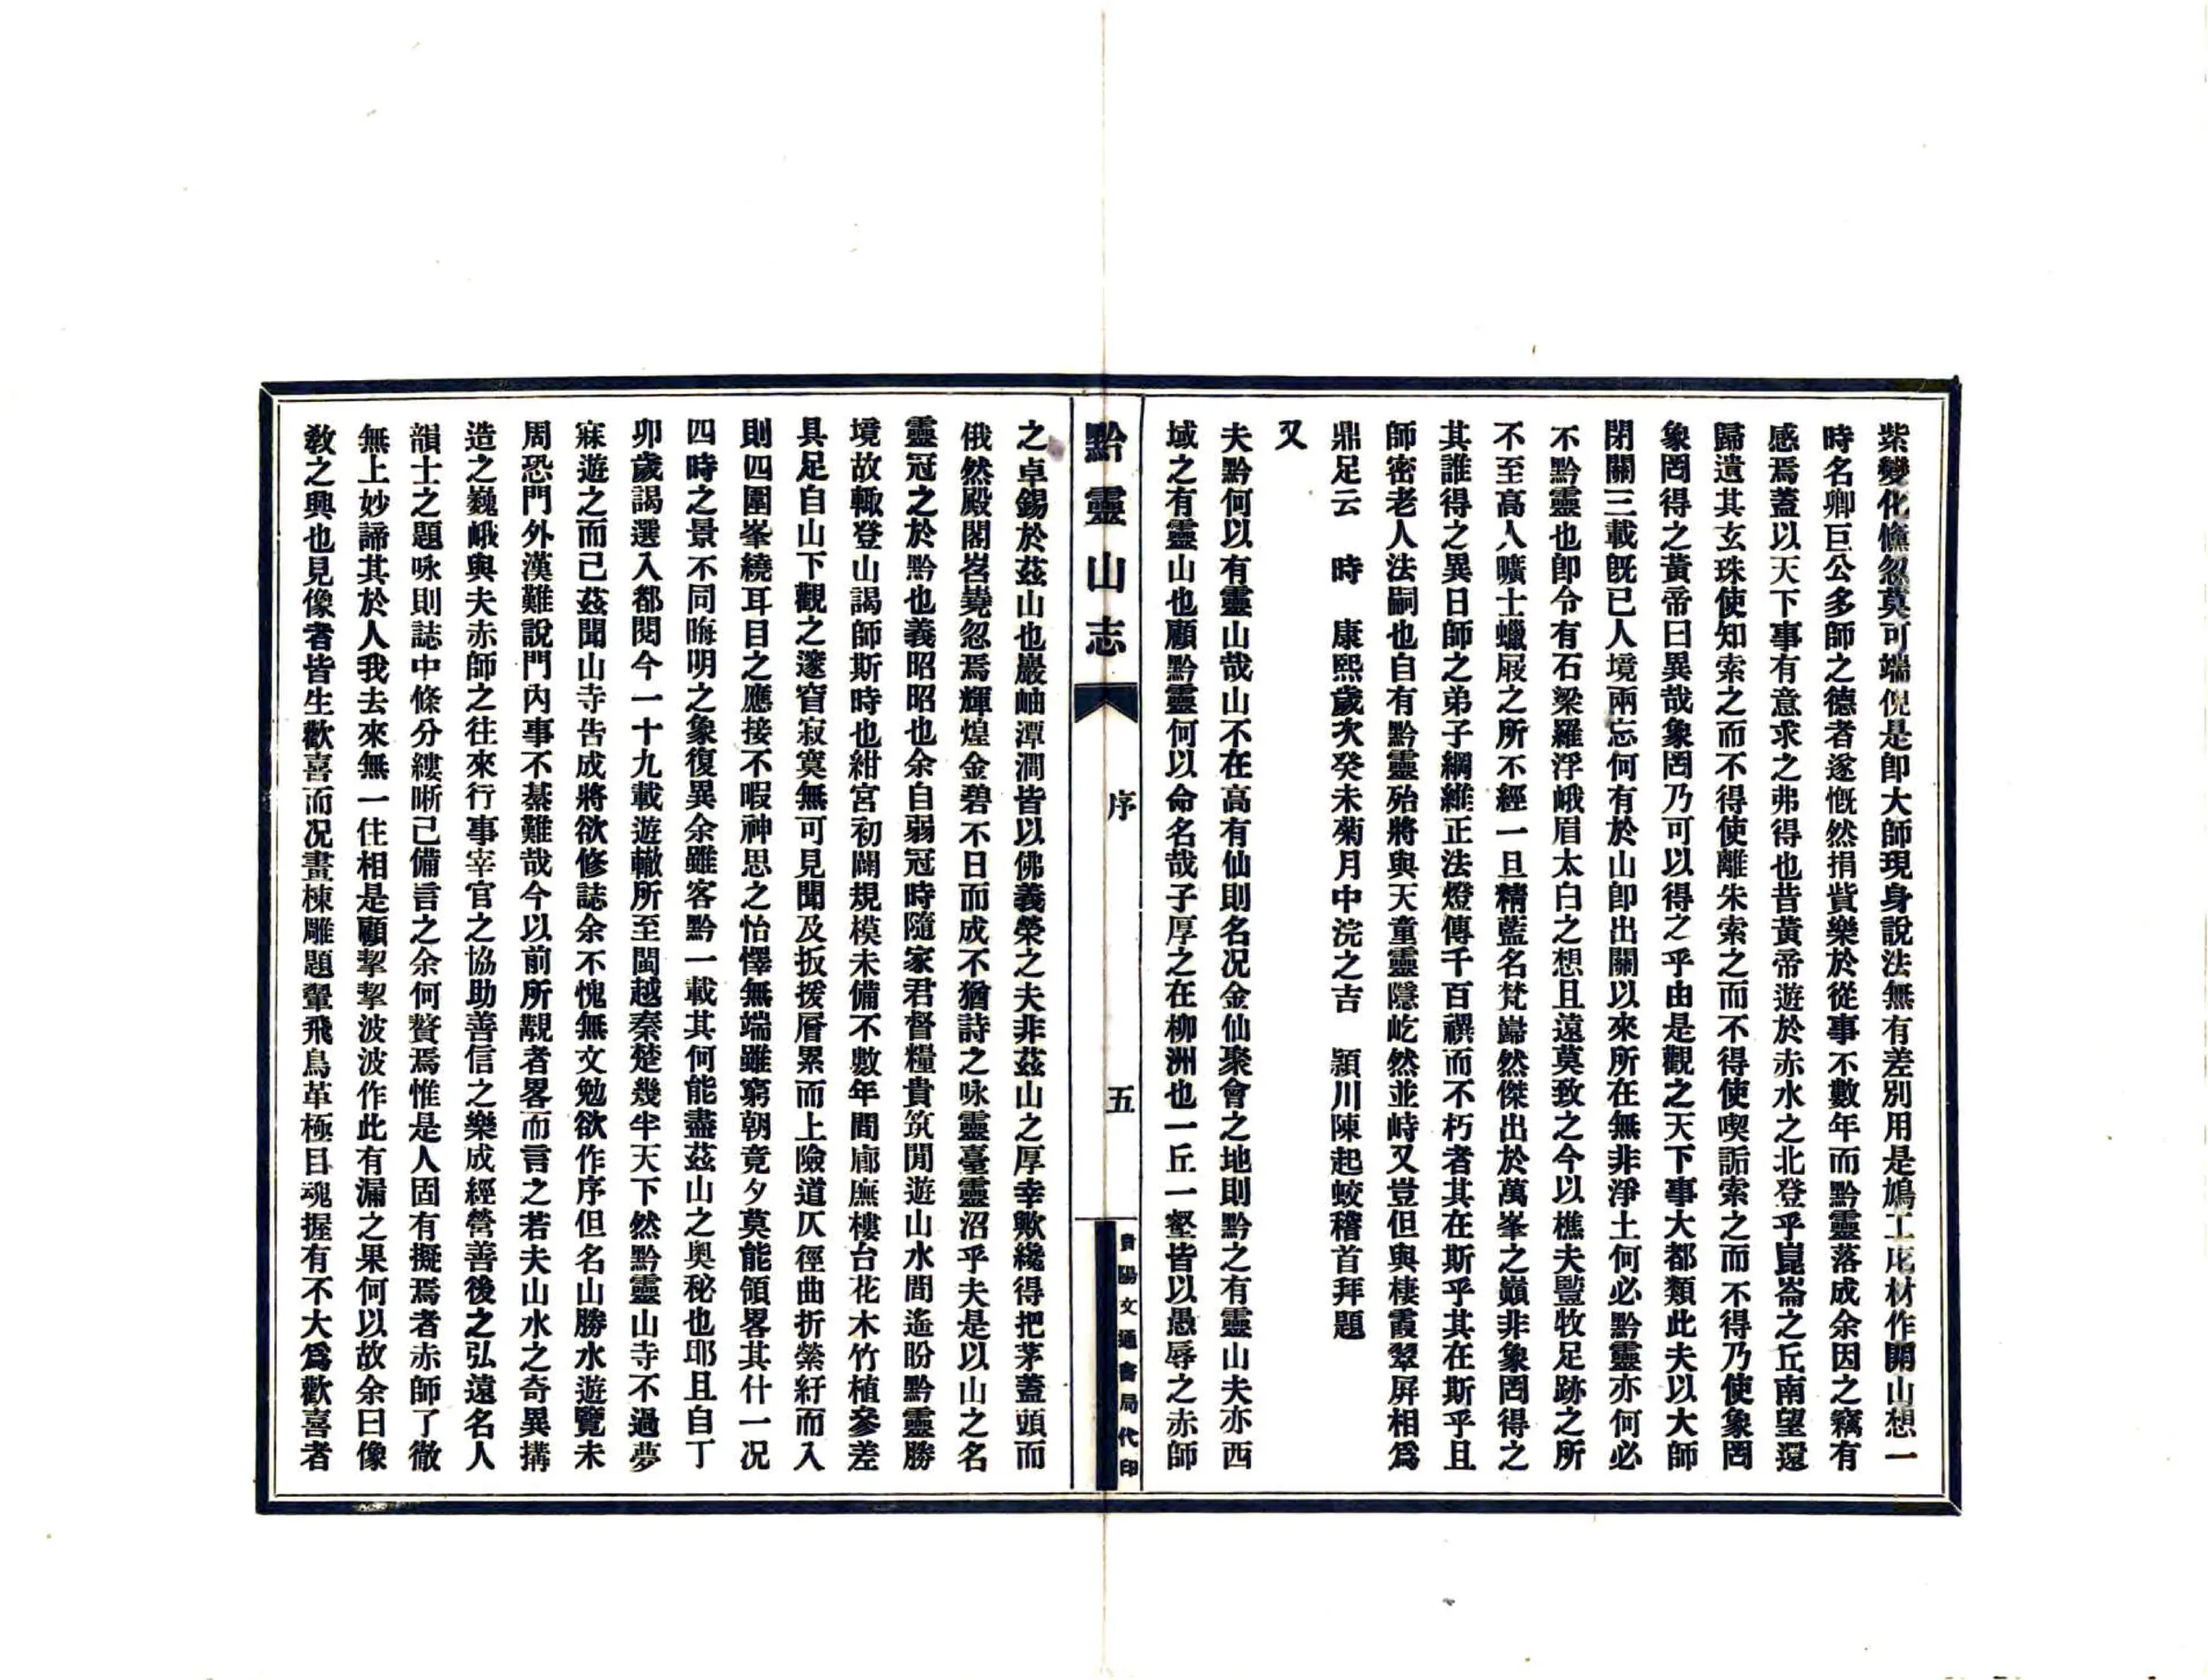 紫變化儵忽莫可端倪是卽大師現身說法無有差別用是鳩工庀材作開山想一
時名卿巨公多師之德者遂慨然捐貲樂於從事不數年而黔靈落成余因之竊有
感焉蓋以天下事有意求之弗得也昔黃帝遊於赤水之北登乎崑崙之丘南望還
歸遺其玄珠使知索之而不得使離朱索之而不得使喫詬索之而不得乃使象罔
象罔得之黃帝曰異哉象罔乃可以得之乎由是觀之天下事大都類此夫以大師
閉關三載旣已人境兩忘何有於山卽出關以來所在無非淨土何必黔靈亦何必
不黔靈也卽令有石梁羅浮峨眉太白之想且遠莫致之今以樵夫豎牧足跡之所
不至高人曠士蠟屐之所不經一旦精藍名梵巋然傑出於萬峯之巔非象罔得之
其誰得之異日師之弟子綱維正法燈傳千百禩而不朽者其在斯乎其在斯乎且
師密老人法嗣也自有黔靈殆將與天童靈隱屹然並峙又豈但與棲霞翠屏相爲
鼎足云　時　康熙歲次癸未菊月中浣之吉　潁川陳起蛟稽首拜題
又
夫黔何以有靈山哉山不在高有仙則名况金仙聚會之地則黔之有靈山夫亦西
域之有靈山也顧黔靈何以命名哉子厚之在柳洲也一丘一壑皆以愚辱之赤師
黔靈山志
序
五
貴陽文通書局代印
之卓錫於茲山也巖岫潭澗皆以佛義榮之夫非茲山之厚幸歟纔得把茅蓋頭而
俄然殿閣岧嶤忽焉輝煌金碧不日而成不猶詩之咏靈臺靈沼乎夫是以山之名
靈冠之於黔也義昭昭也余自弱冠時隨家君督糧貴筑閒遊山水間遙盼黔靈勝
境故輙登山謁師斯時也紺宮初闢規模未備不數年間廊廡樓台花木竹植參差
具足自山下觀之邃窅寂寞無可見聞及扳援層累而上險道仄徑曲折縈紆而入
則四圍峯繞耳目之應接不暇神思之怡懌無端雖窮朝竟夕莫能領畧其什一况
四時之景不同晦明之象復異余雖客黔一載其何能盡茲山之奥秘也耶且自丁
卯歲謁選入都閱今一十九載遊轍所至閩越秦楚幾半天下然黔靈山寺不過夢
寐遊之而已茲聞山寺告成將欲修誌余不愧無文勉欲作序但名山勝水遊覽未
周恐門外漢難說門內事不綦難哉今以前所覩者畧而言之若夫山水之奇異搆
造之巍峨與夫赤師之往來行事宰官之協助善信之樂成經營善後之弘遠名人
韻士之題咏則誌中條分縷晰已備言之余何贅焉惟是人固有擬焉者赤師了徹
無上妙諦其於人我去來無一住相是顧挈挈波波作此有漏之果何以故余曰像
敎之興也見像者皆生歡喜而况畫棟雕題翬飛鳥革極目魂握有不大爲歡喜者